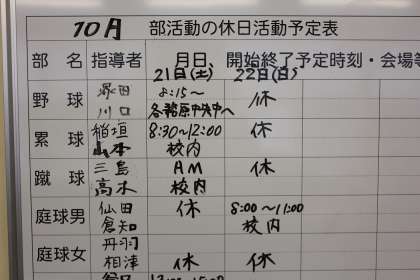 10月 部活動の休日活動予定表
部 名 指導者 月日、開始終了予定時刻・会場等
21日(土) 22日(日)
野 球 塚田 8:15~ 休
川口 各務原中央中へ
累 球 稲垣 8:30~12:00 休
山本 校内
蹴 球 三島 AM 休
高木 校内
庭球男 仙田 休 8:00~11:00
倉知 校内
庭球女 丹羽
相澤 休 休